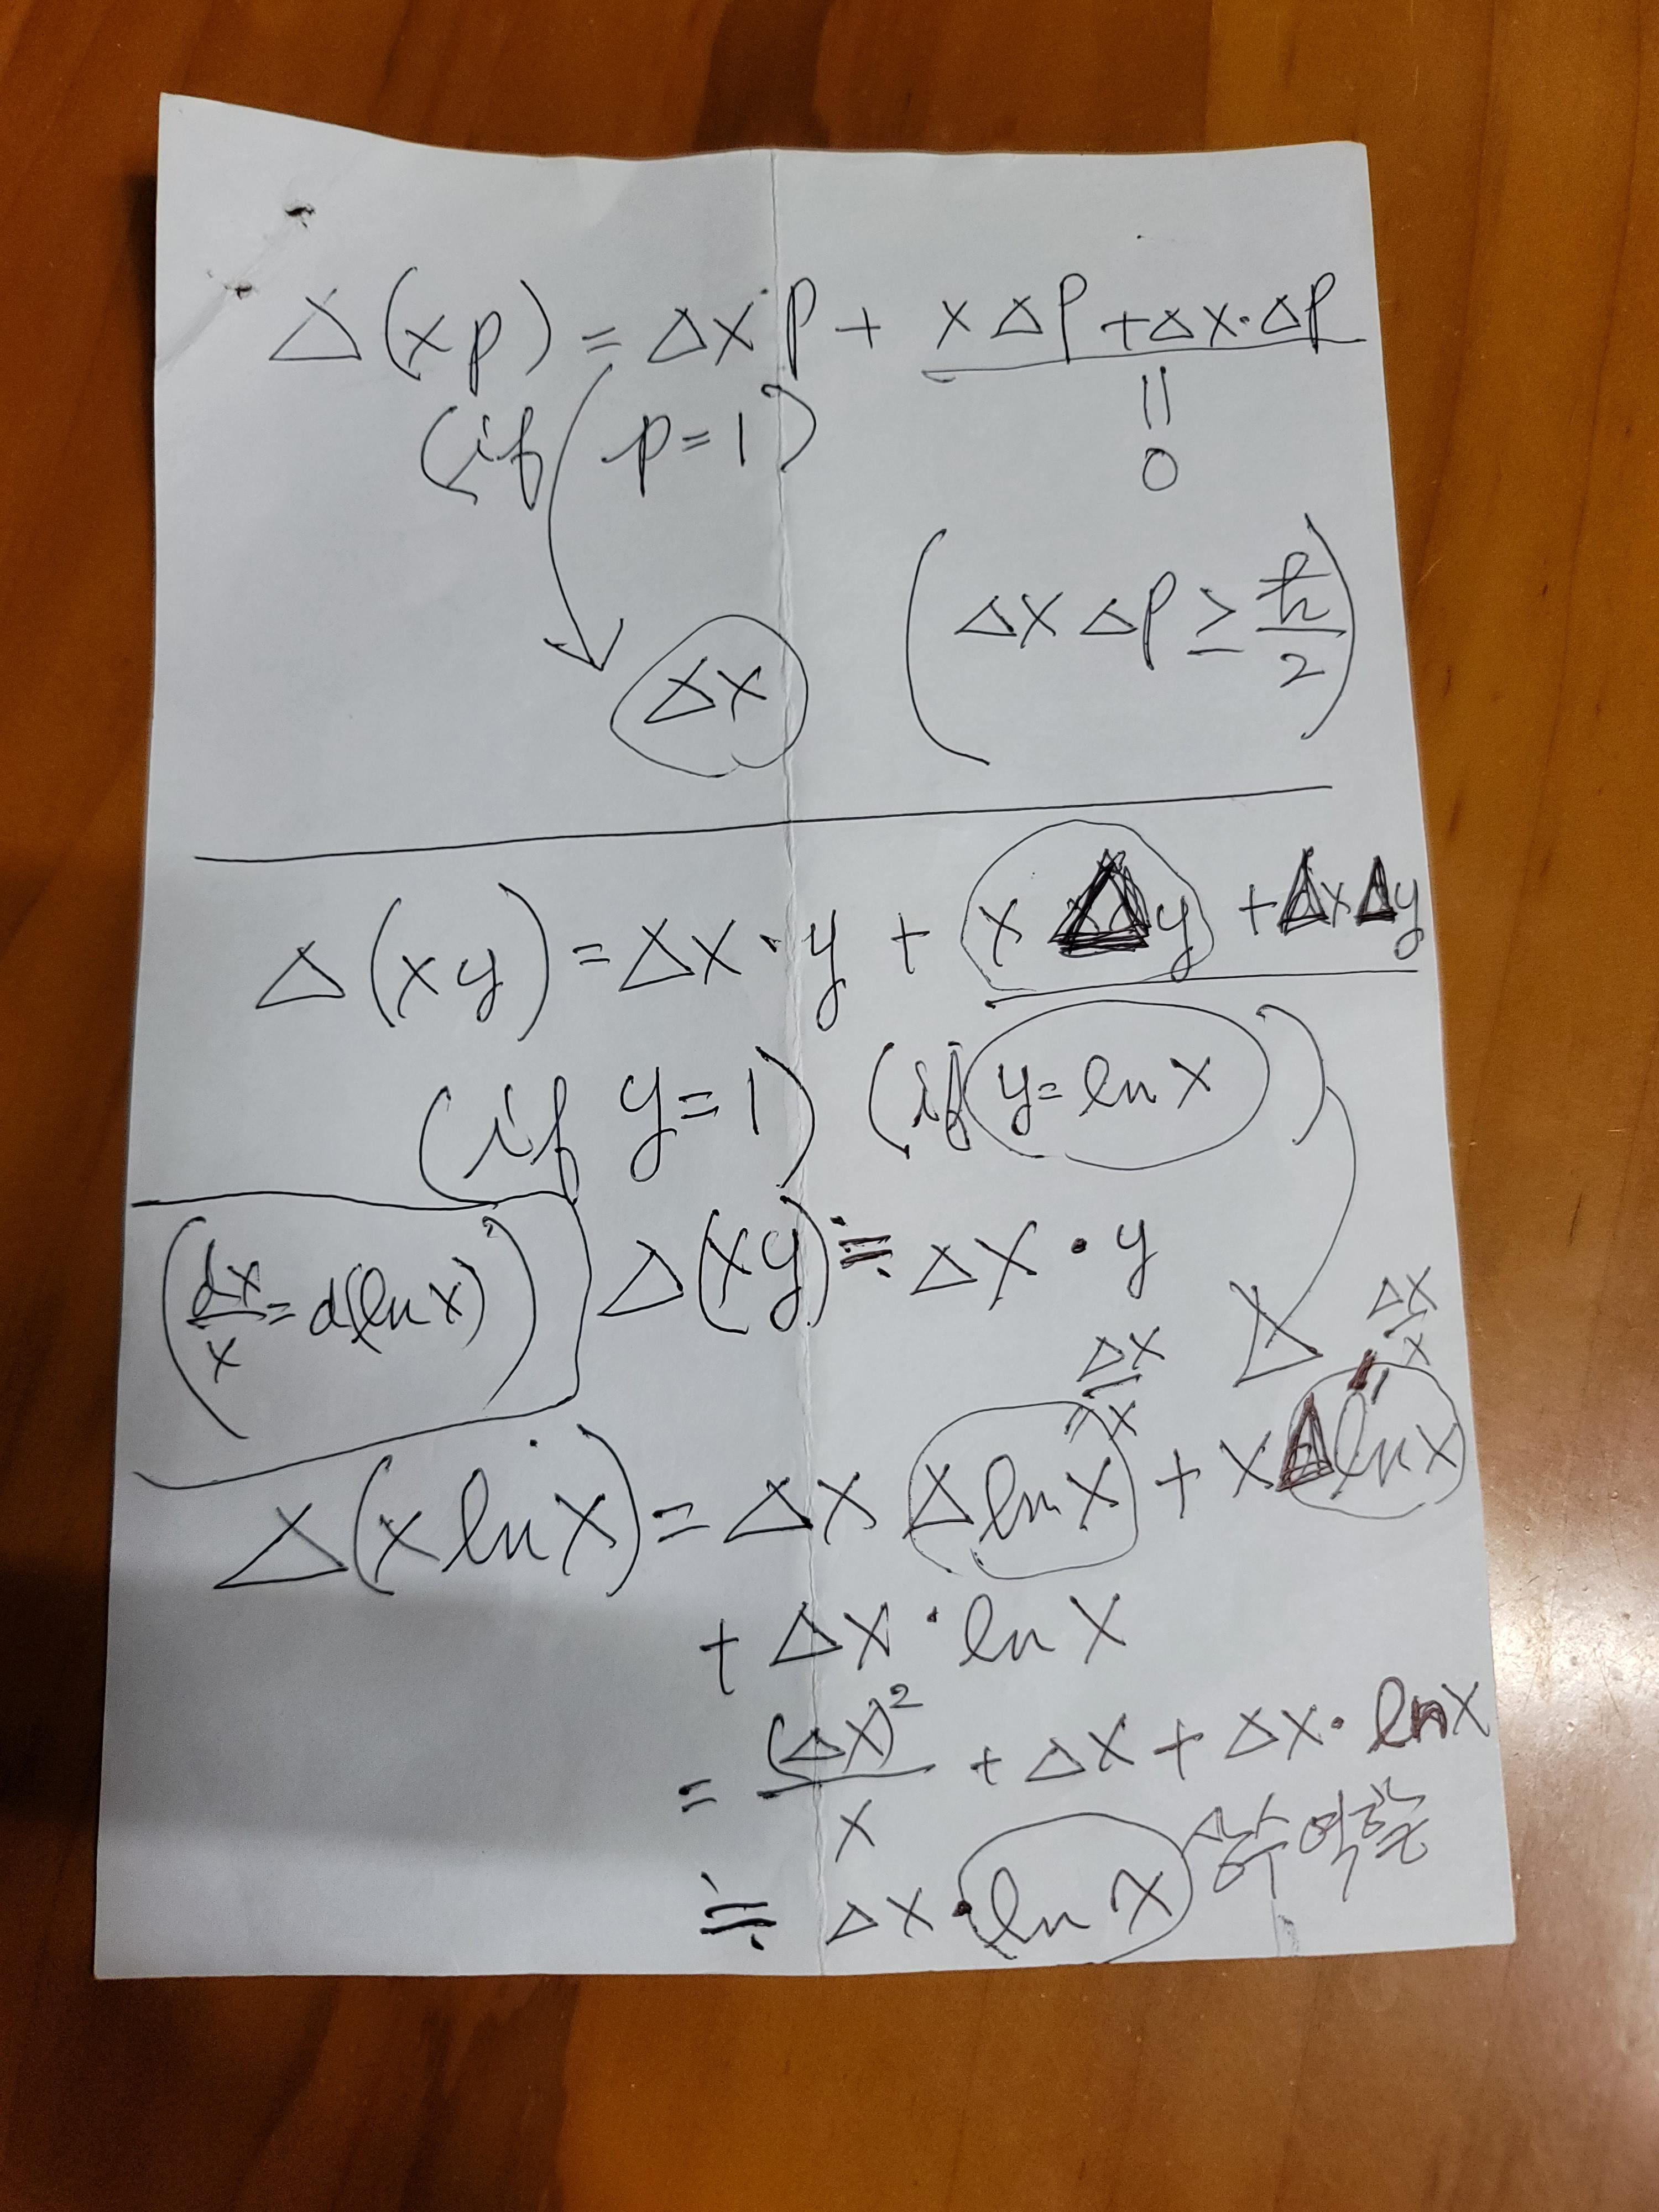 Δ(xp) = Δx·p + xΔp + Δx·Δp
(if p=1)
||
0
Δx
(Δx Δp ≥ ħ/2)
Δ(xy) = Δx·y + xΔy + ΔxΔy
(if y=1) (if y=ln x)
(dx/x = d(ln x)) Δ(xy) ≒ Δx·y
Δx/x Δ Δx/x
Δ(x ln x) = Δx Δln x + xΔln x
+ Δx·ln x
= (Δx)²/x + Δx + Δx·ln x
≒ Δx·ln x 상수 역할